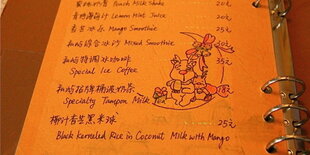 Peach Milk Shake 20元
青柠薄荷汁 Lemon Mint Juice 20元
香芒冰沙 Mango Smoothie 25元
私酷综合冰沙 Mixed Smoothie
私酷特调冰咖啡 35元
Special Ice Coffee
私酷招牌 奶茶
Specialty Tampon Milk Tea
椰汁香芒黑米球 25元
Black Kerneled Rice in Coconut Milk with Mango